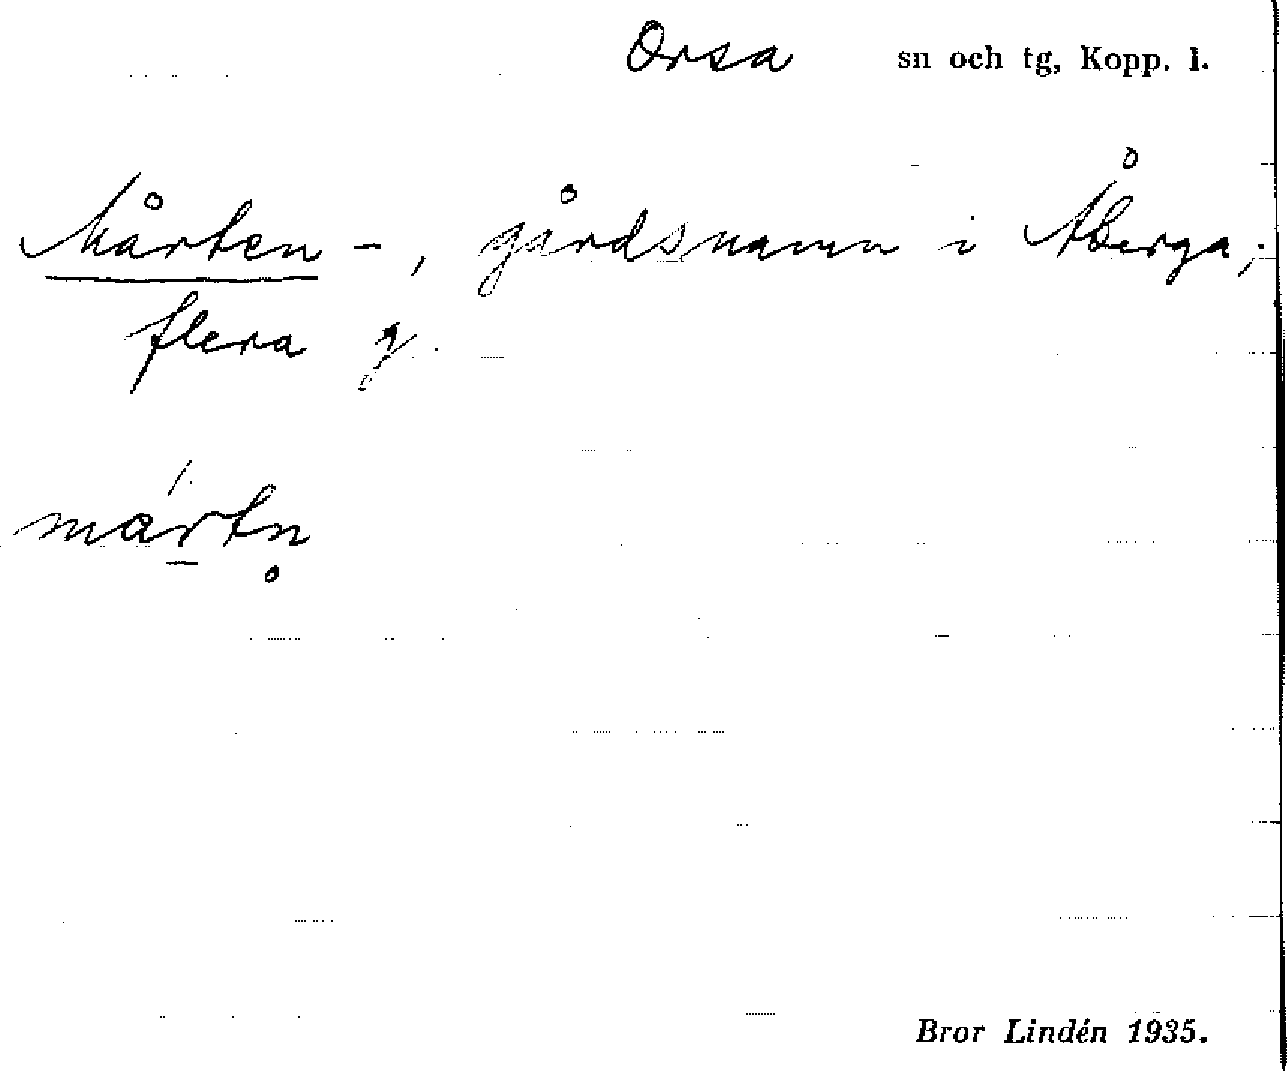 Orsa sn och tg, Kopp. l.
Mårten -, gårdsnamn i Åberga;
flera g.
má̱rtn̥
Bror Lindén 1935.